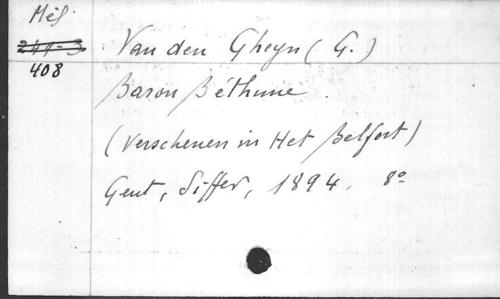 Mél.
241-3
408
Van den Gheyn (G.)
Baron Béthune.
(Verschenen in Het Belfort)
Gent, Siffer, 1894. 8°